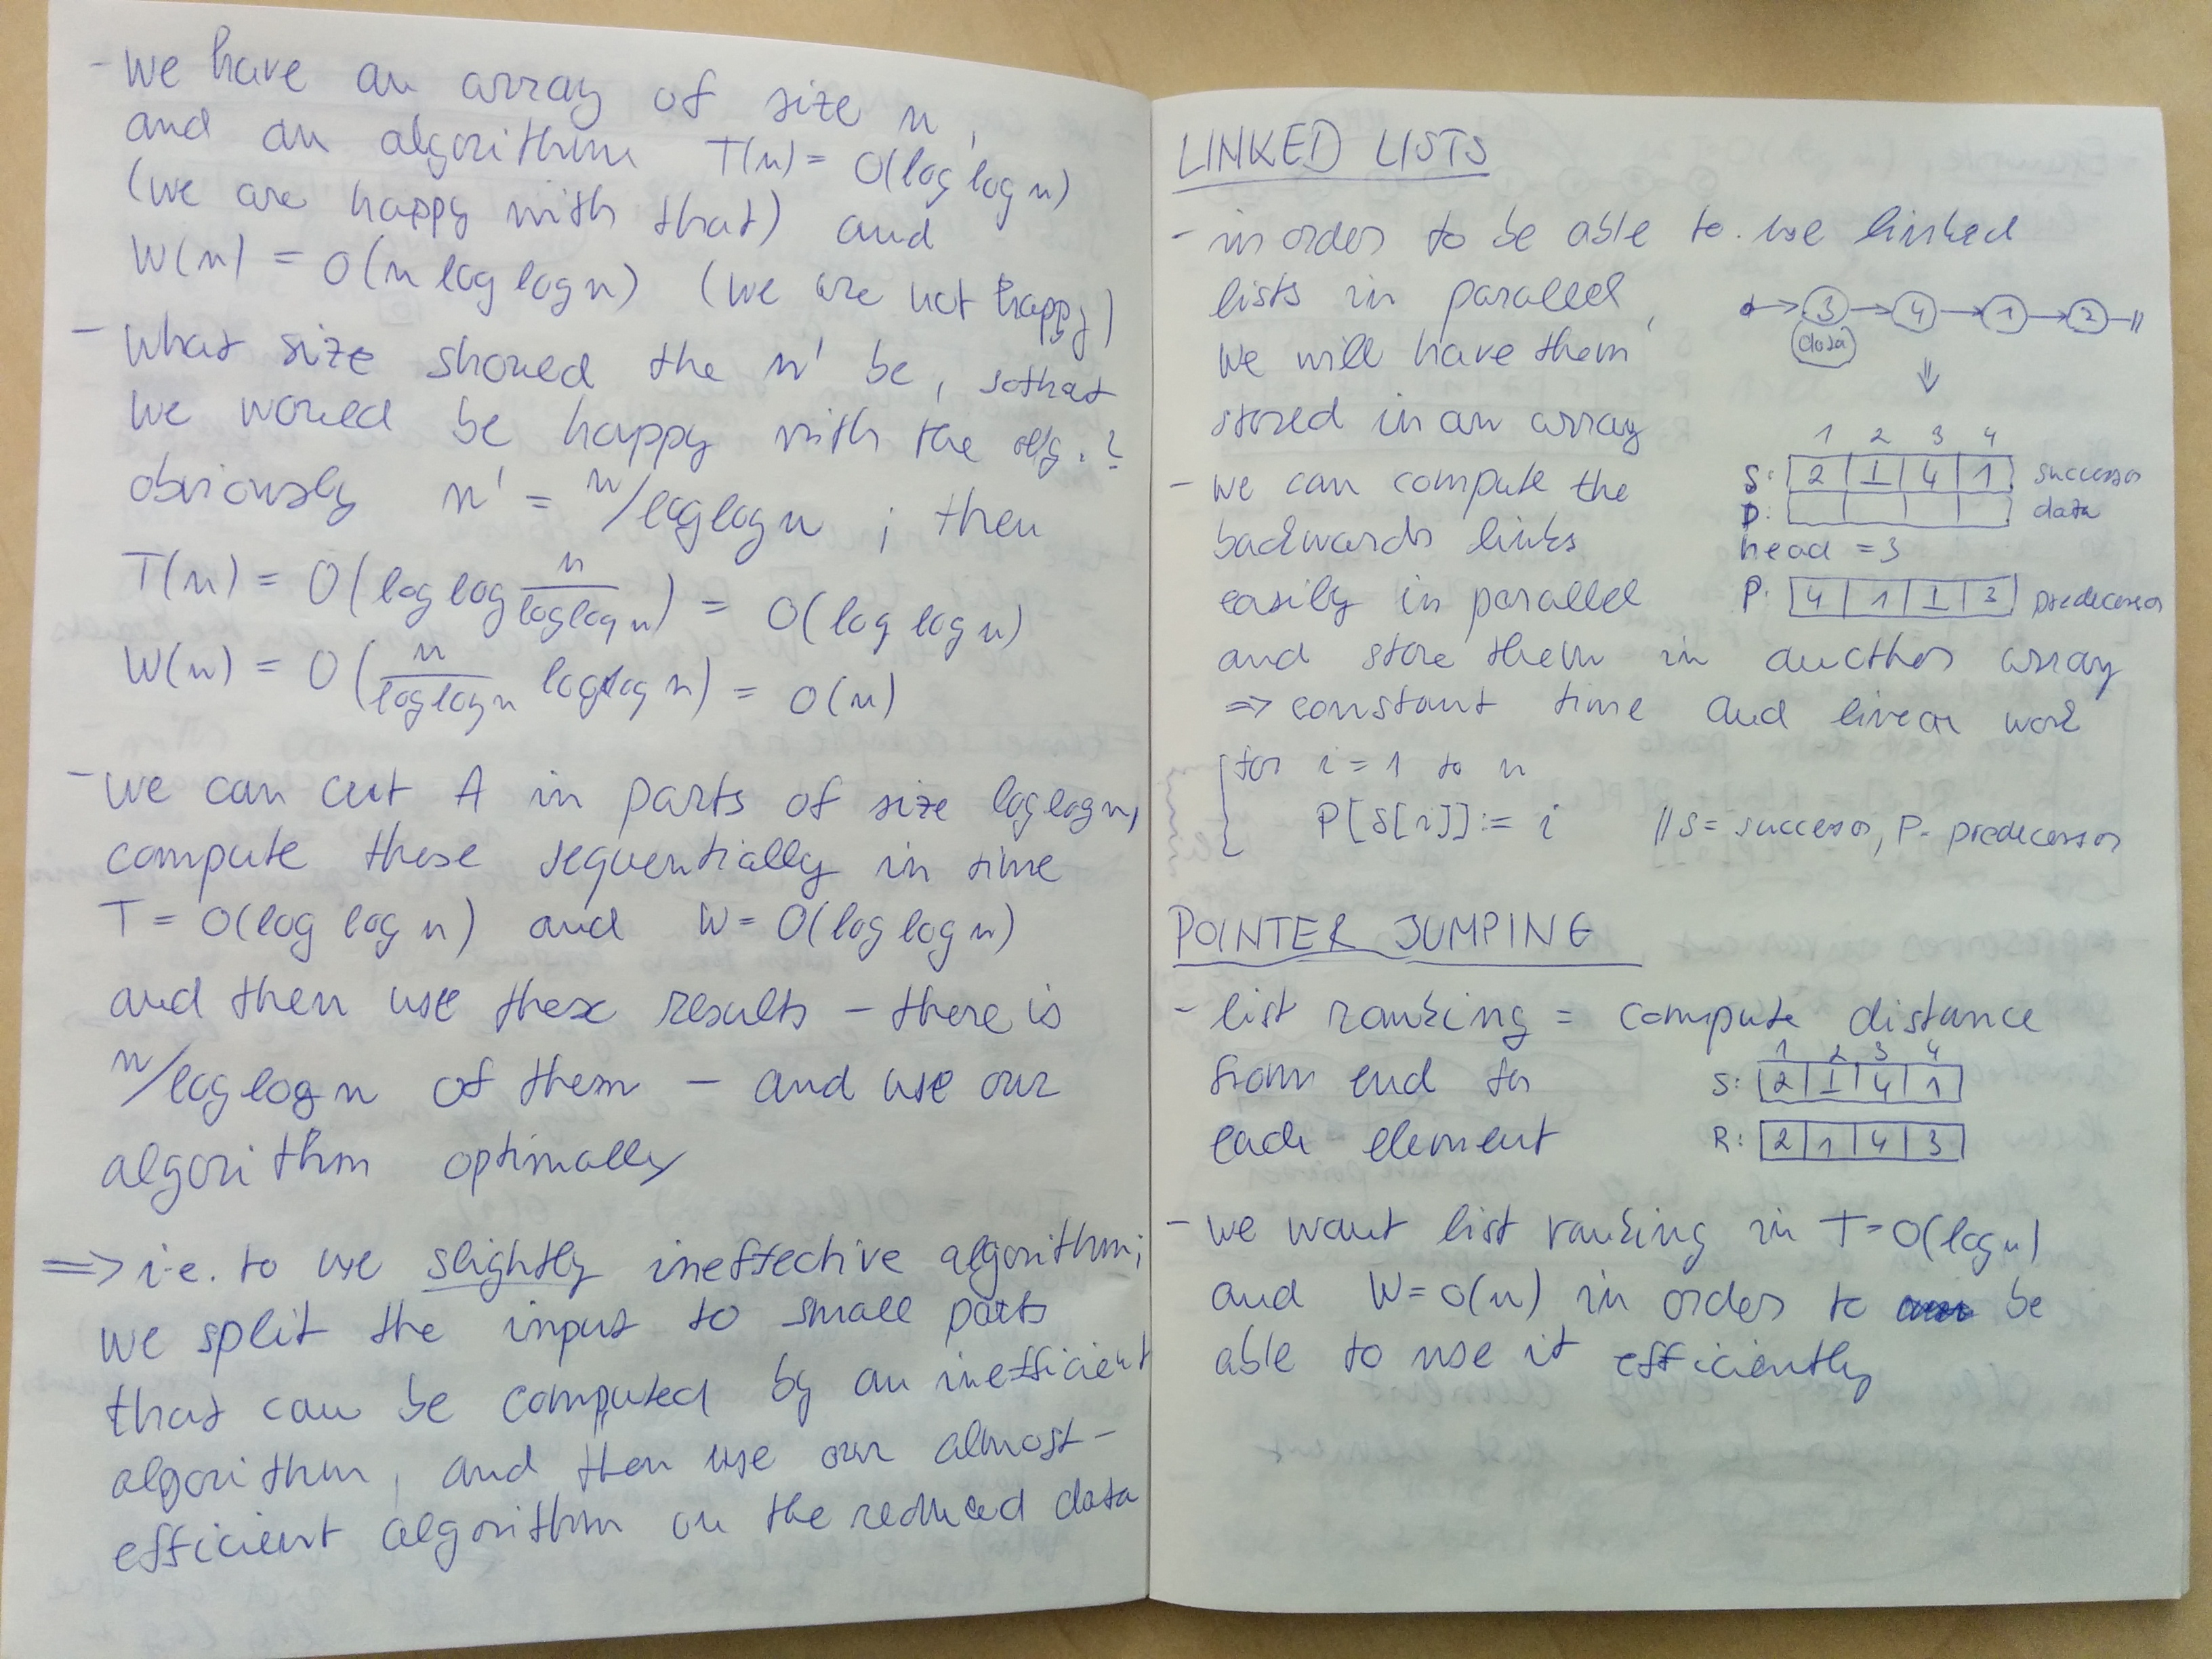 - we have an array of size n,
and an algorithm T(n) = O(log log n)
(we are happy with that) and
W(n) = O(n log log n) (we are not happy)
- what size should the n' be, so that
we would be happy with the alg.?
obviously n' = n/loglog n ; then
T(n) = O(log log n/loglog n) = O(log log n)
W(n) = O(n/loglog n log log n) = O(n)
- we can cut A in parts of size loglog n,
compute these sequentially in time
T = O(log log n) and W = O(log log n)
and then use these results – there is
n/loglog n of them – and use our
algorithm optimally
=> i.e. to use slightly ineffective algorithm;
we split the input to small parts
that can be computed by an inefficient
algorithm, and then use our almost-
efficient algorithm on the reduced data
LINKED LISTS
- in order to be able to use linked
lists in parallel,
we will have them
stored in an array
3 → 4 → 1 → 2
data
⇓
1 2 3 4
S: 2 ⊥ 4 1 successor
D: data
head = 3
P: 4 1 ⊥ 3 predecessor
- we can compute the
backwards links
easily in parallel
and store them in another array
=> constant time and linear work
for i = 1 to n
P[S[i]] := i // S = successor, P - predecessor
POINTER JUMPING
- list ranking = compute distance
from end for
each element
1 2 3 4
S: 2 ⊥ 4 1
R: 2 1 4 3
- we want list ranking in T=O(log n)
and W=O(n) in order to be
able to use it efficiently